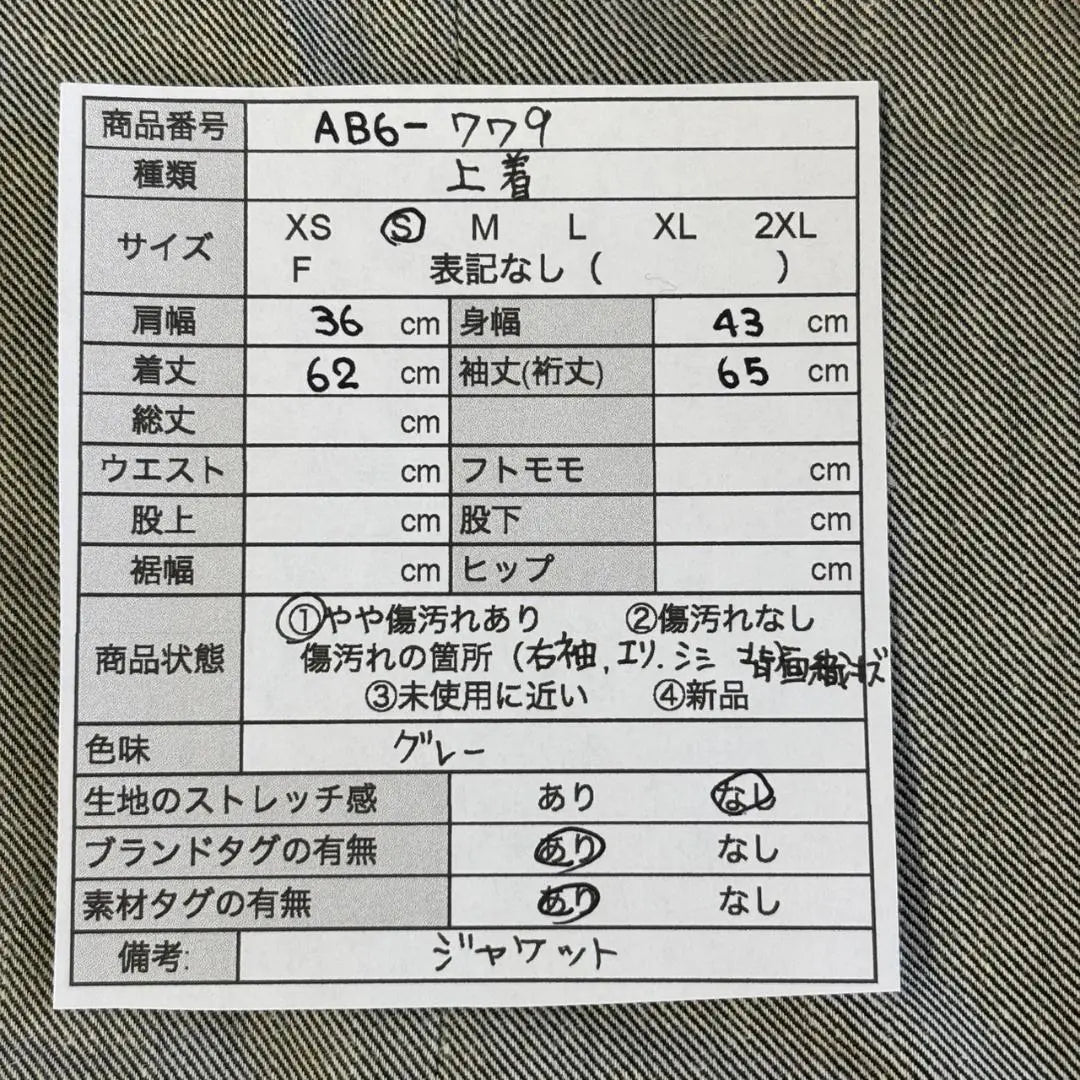 商品番号 AB6-779
種類 上着
サイズ XS S M L XL 2XL
F 表記なし ( )
肩幅 36 cm 身幅 43 cm
着丈 62 cm 袖丈(裄丈) 65 cm
総丈 cm
ウエスト cm フトモモ cm
股上 cm 股下 cm
裾幅 cm ヒップ cm
商品状態 ①やや傷汚れあり ②傷汚れなし
傷汚れの箇所 (右袖, エリ. シミ 背面織キズ
③未使用に近い ④新品
色味 グレー
生地のストレッチ感 あり なし
ブランドタグの有無 あり なし
素材タグの有無 あり なし
備考: ジャケット